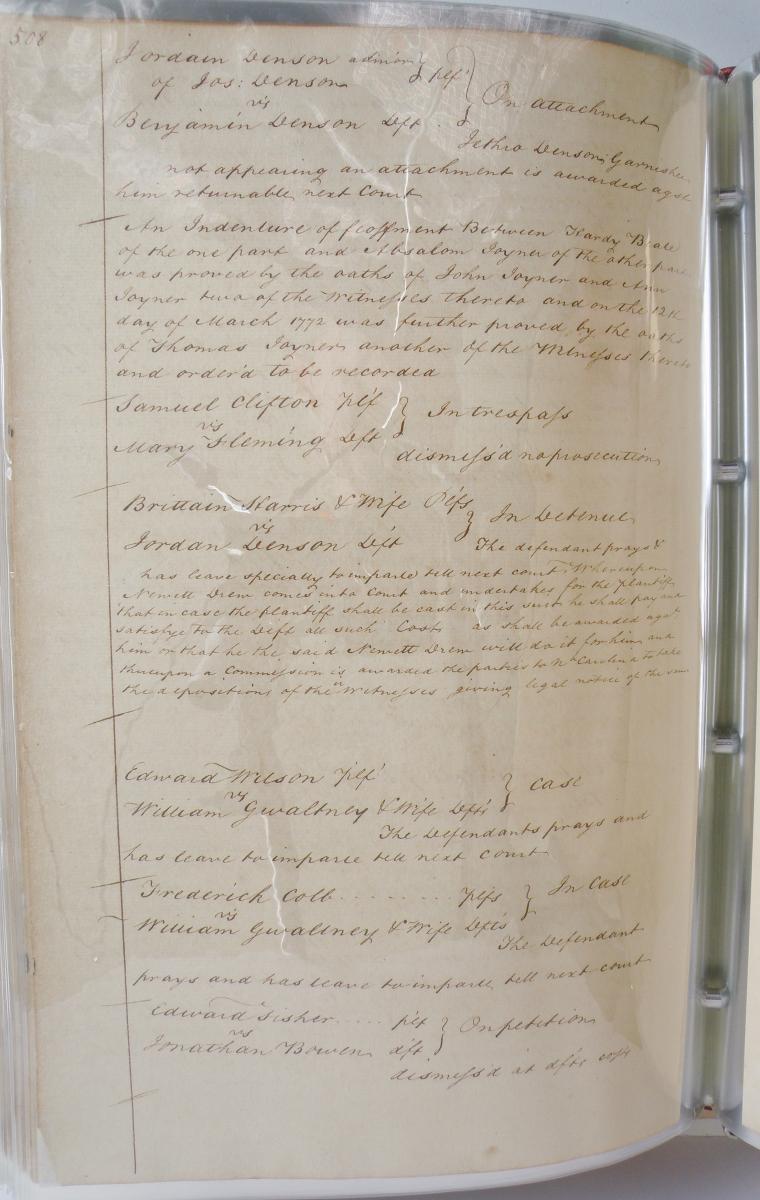 508
Jordain Denson admor } plf
of Jos: Denson
vs } On attachment
Benjamin Denson Deft.
Jethro Denson Garnishee
not appearing an attachment is awarded agst
him returnable next Court
An Indenture of feoffment Between Hardy Beale
of the one part and Absalom Joyner of the other part
was proved by the oaths of John Joyner and Ann
Joyner two of the Witnesses thereto and on the 12th
day of March 1772 was further proved by the oaths
of Thomas Joyner another of the Witnesses thereto
and order'd to be recorded
Samuel Clifton Plf } In trespass
vs
Mary Fleming Deft
dismess'd no prosecution
Brittain Harris & Wife Plfs } In Detenue
vs
Jordan Denson Deft
The defendant prays &
has leave specially to imparle tell next court Whereupon
Newett Drew comes into Court and undertakes for the plantiff
that in case the plantiff shall be cast in this suit he shall pay and
satisfye to the Deft all such Costs as shall be awarded agst
him or that he the said Newett Drew will do it for him and
thereupon a Commission is awarded the parties to No Carolina to take
the depositions of their Witnesses giving legal notice of the same
Edward Wilson Plf } case
vs
William Gwaltney & Wife Defts
The Defendants prays and
has leave to imparle tell next court
Frederick Cobb .......... Plfs } In Case
vs
William Gwaltney & Wife Defts
The Defendant
prays and has leave to imparle tell next court
Edward Fisher .... plf } On petition
vs
Jonathan Bowen dft
dismess'd at dfts cost